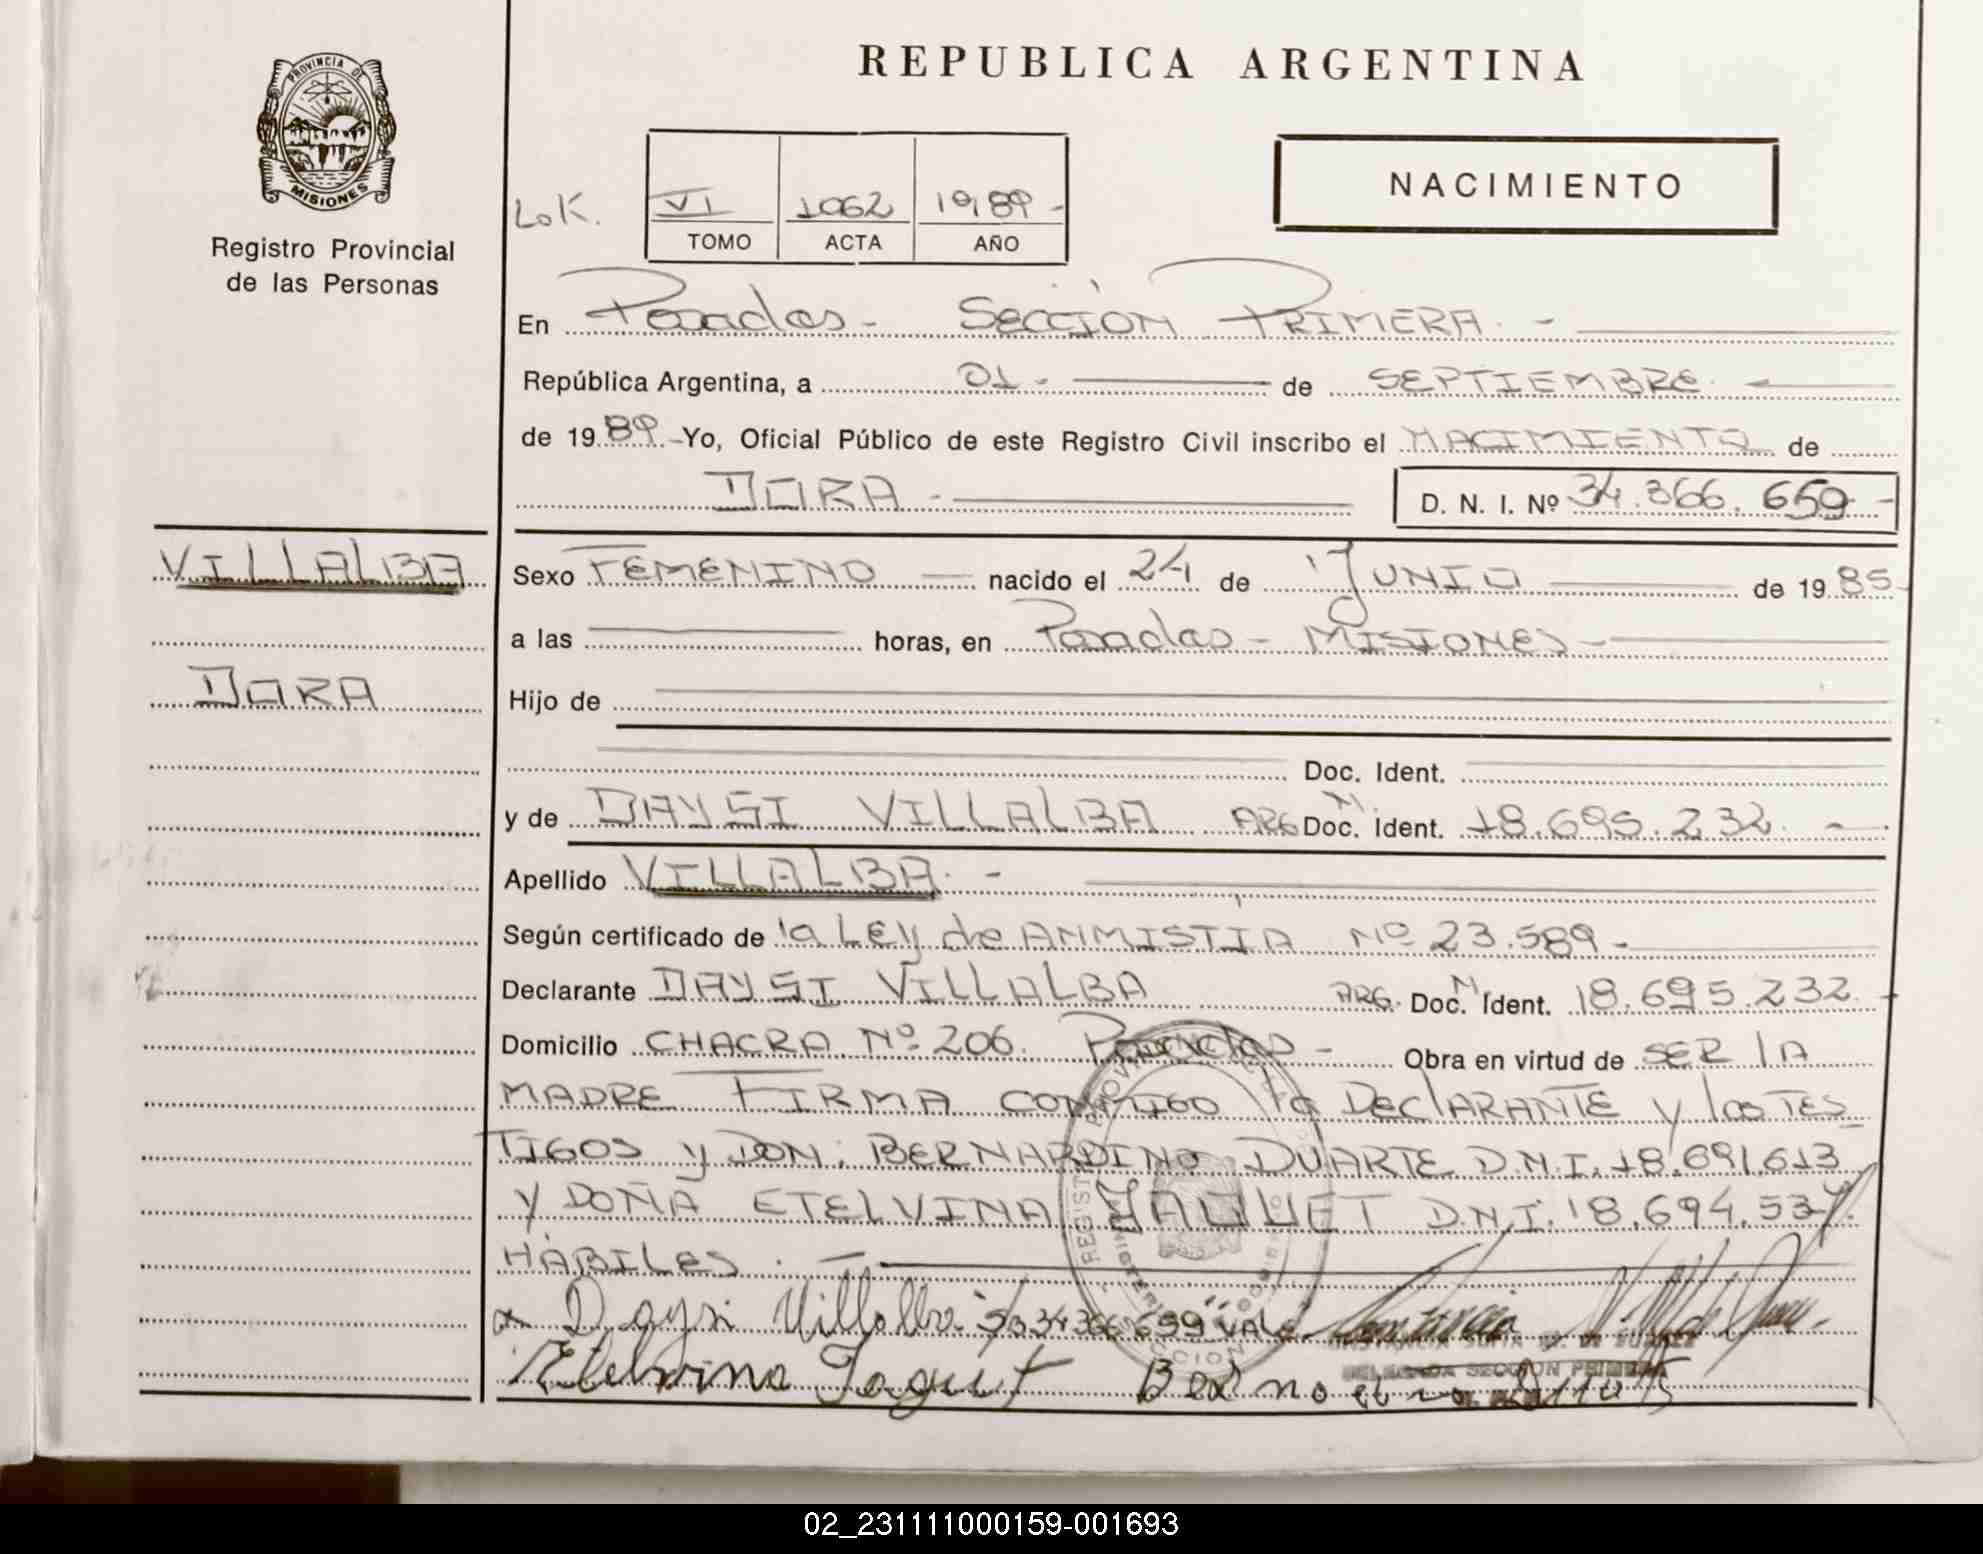 REPUBLICA ARGENTINA
PROVINCIA DE
MISIONES
Registro Provincial
de las Personas
NACIMIENTO
LoK.
VI 1062 1989-
TOMO ACTA AÑO
En Posadas - SECCIÓN PRIMERA. -
República Argentina, a 01- de SEPTIEMBRE.-
de 1989 - Yo, Oficial Público de este Registro Civil inscribo el NACIMIENTO de
DORA - D. N. I. Nº 34.366.659 -
VILLALBA
DORA
Sexo FEMENINO nacido el 24 de JUNIO de 1985-
a las horas, en Posadas - MISIONES -
Hijo de
Doc. Ident.
y de DAYSI VILLALBA ARG Doc. M. Ident. 18.695.232. -
Apellido VILLALBA. -
Según certificado de la LEY de ANMISTIA Nº 23.589 -
Declarante DAYSI VILLALBA ARG. Doc. M. Ident. 18.695.232. -
Domicilio CHACRA Nº 206. Posadas - Obra en virtud de SER lA
MADRE FIRMA CONMIGO la DEClARANTE y los TES_
TIGOS y DON: BERNARDINO DUARTE D.N.I. 18.691.613
Y DOÑA ETELVINA YAQUET D.N.I. 18.694.537.
HÁBILES. -
x Daysi Villalba S/o 34366659 "VALE"
CONSTANCIA SUÑA DE SUAREZ
Etelvina Jaquet Bernardino Duarte
DELEGADA SECCION PRIMERA
02_231111000159-001693